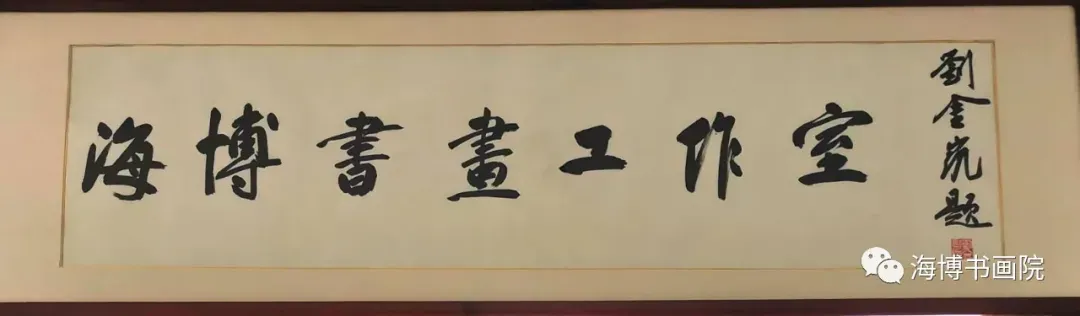 海博書畫工作室
劉金题
海博书画院